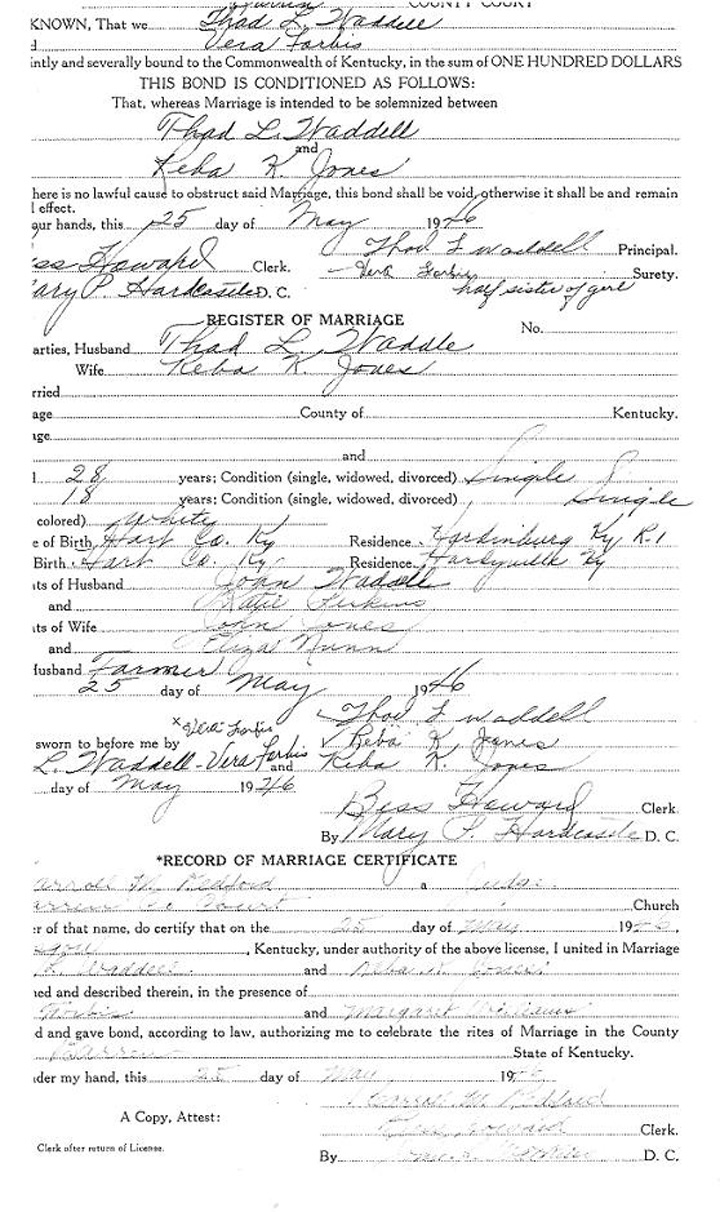 COUNTY COURT
KNOWN, That we Thad L. Waddell
d Vera Forbis
intly and severally bound to the Commonwealth of Kentucky, in the sum of ONE HUNDRED DOLLARS
THIS BOND IS CONDITIONED AS FOLLOWS:
That, whereas Marriage is intended to be solemnized between
Thad L. Waddell
and
Reba K. Jones
here is no lawful cause to obstruct said Marriage, this bond shall be void, otherwise it shall be and remain
l effect.
our hands, this 25 day of May 1946
Thad L Waddell Principal.
ess Howard Clerk.
Vera Forbis Surety.
ary P. Hardcastle D. C. half sister of girl
REGISTER OF MARRIAGE
No.
arties, Husband Thad L. Waddle
Wife Reba K. Jones
rried
age County of Kentucky.
ge
and
l 28 years; Condition (single, widowed, divorced) Single
18 years; Condition (single, widowed, divorced) Single
colored) White
e of Birth Hart Co. Ky Residence Hardinburg Ky R-1
Birth Hart Co. Ky Residence Hardyville Ky
ts of Husband John Waddell
and Katie Perkins
ts of Wife John Jones
and Eliza Nunn
usband Farmer
25 day of May 1946
Thad L Waddell
x Vera Forbis
sworn to before me by √ Reba K. Jones
L. Waddell - Vera Forbis and Reba K. Jones
day of May 1946
Bess Howard Clerk
By Mary P. Hardcastle D. C.
*RECORD OF MARRIAGE CERTIFICATE
arroll M. Redford a Judge
arren Co Court Church
er of that name, do certify that on the 25 day of May 1946,
, Kentucky, under authority of the above license, I united in Marriage
L. Waddell and Reba K. Jones
ned and described therein, in the presence of
Forbis and Margaret Williams
d and gave bond, according to law, authorizing me to celebrate the rites of Marriage in the County
Barren State of Kentucky.
der my hand, this 25 day of May 1946
Carroll M. Redford
A Copy, Attest:
Bess Howard Clerk.
Clerk after return of License.
By D. C.